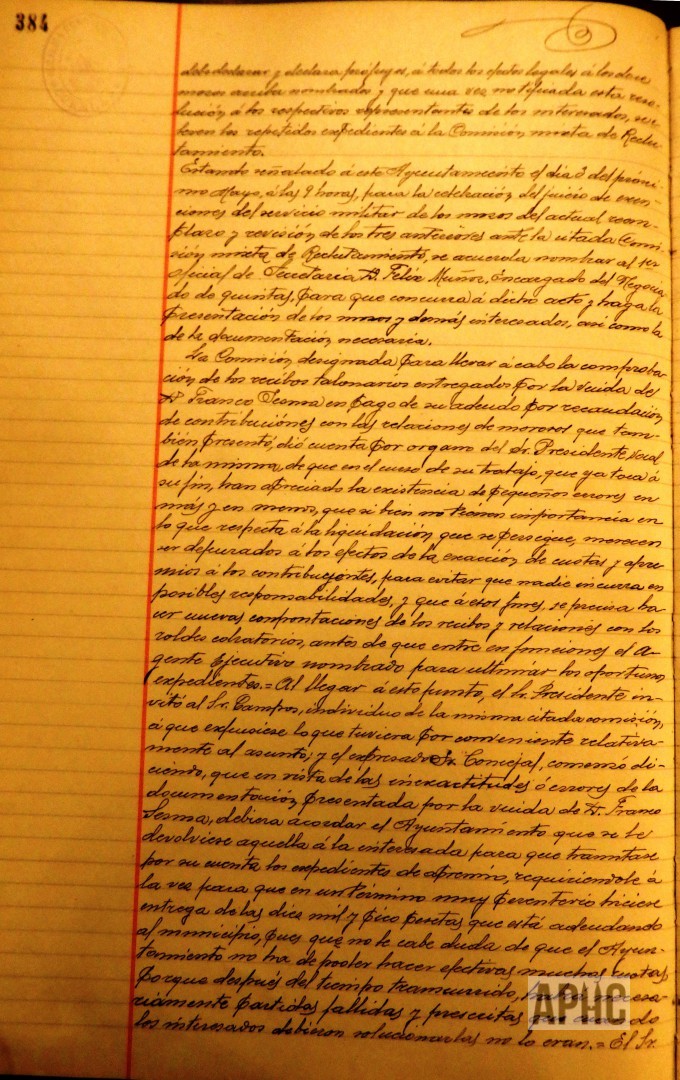 384
debe declarar y declara prófugos, á todos los efectos legales á los doce
mozos arriba nombrados y que una vez notificada esta reso-
lución á los respectivos representantes de los interesados, se e-
leven los repetidos expedientes á la Comisión mixta de Reclu-
tamiento.
Estando señalado á este Ayuntamiento el dia 3 del próxi-
mo Mayo, á las 9 horas, para la celebración del juicio de exen-
ciones del servicio militar de los mozos del actual reem-
plazo y revisión de los tres anteriores ante la citada Comi-
sión mixta de Reclutamiento, se acuerda nombrar al 1er
oficial de Secretaria D. Felix Muñoz, Encargado del Negocia-
do de quintas, para que concurra á dicho acto y haga la
presentación de los mozos y demás interesados, asi como la
de la documentación necesaria.
La Comisión designada para llevar á cabo la comproba-
ción de los recibos talonarios entregados por la viuda de
D. Franco Sesma en pago de su adeudo por recaudación
de contribuciones con las relaciones de morosos que tam-
bién presentó, dió cuenta por organo del Sr. Presidente, vocal
de la misma, de que en el curso de su trabajo, que ya toca á
su fin, han apreciado la existencia de pequeños errores en
más y en menos, que si bien no tienen importancia en
lo que respecta á la liquidación que se persegue, merecen
ser depurados á los efectos de la exacción de cuotas y apre-
mios á los contribuyentes, para evitar que nadie incurra en
posibles responsabilidades, y que á esos fines, se precisa ha-
cer nuevas confrontaciones de los recibos y relaciones con los
roldes cobratorios, antes de que entre en funciones el A-
gente Ejecutivo nombrado para ultimar los oportunos
expedientes.= Al llegar á este punto, el Sr. Presidente in-
vitó al Sr. Campos, individuo de la misma citada comisión,
á que expusiese lo que tuviera por conveniente relativa-
mente al asunto; y el expresado Sr. Concejal, comenzó di-
ciendo, que en vista de las inexactitudes ó errores de la
documentación presentada por la viuda de D. Franco
Sesma, debiera acordar el Ayuntamiento que se le
devolviese aquella á la interesada para que tramitase
por su cuenta los expedientes de apremio, requiriendole á
la vez para que en un término muy perentorio hiciese
entrega de las diez mil y pico pesetas que está adeudando
al municipio, pues que no le cabe duda de que el Ayun-
tamiento no ha de poder hacer efectivas muchas cuotas,
porque después del tiempo transcurrido,
riamente partidas fallidas y prescritas
los interesados debieron solucionarlas no lo eran.= El Sr.
APHC